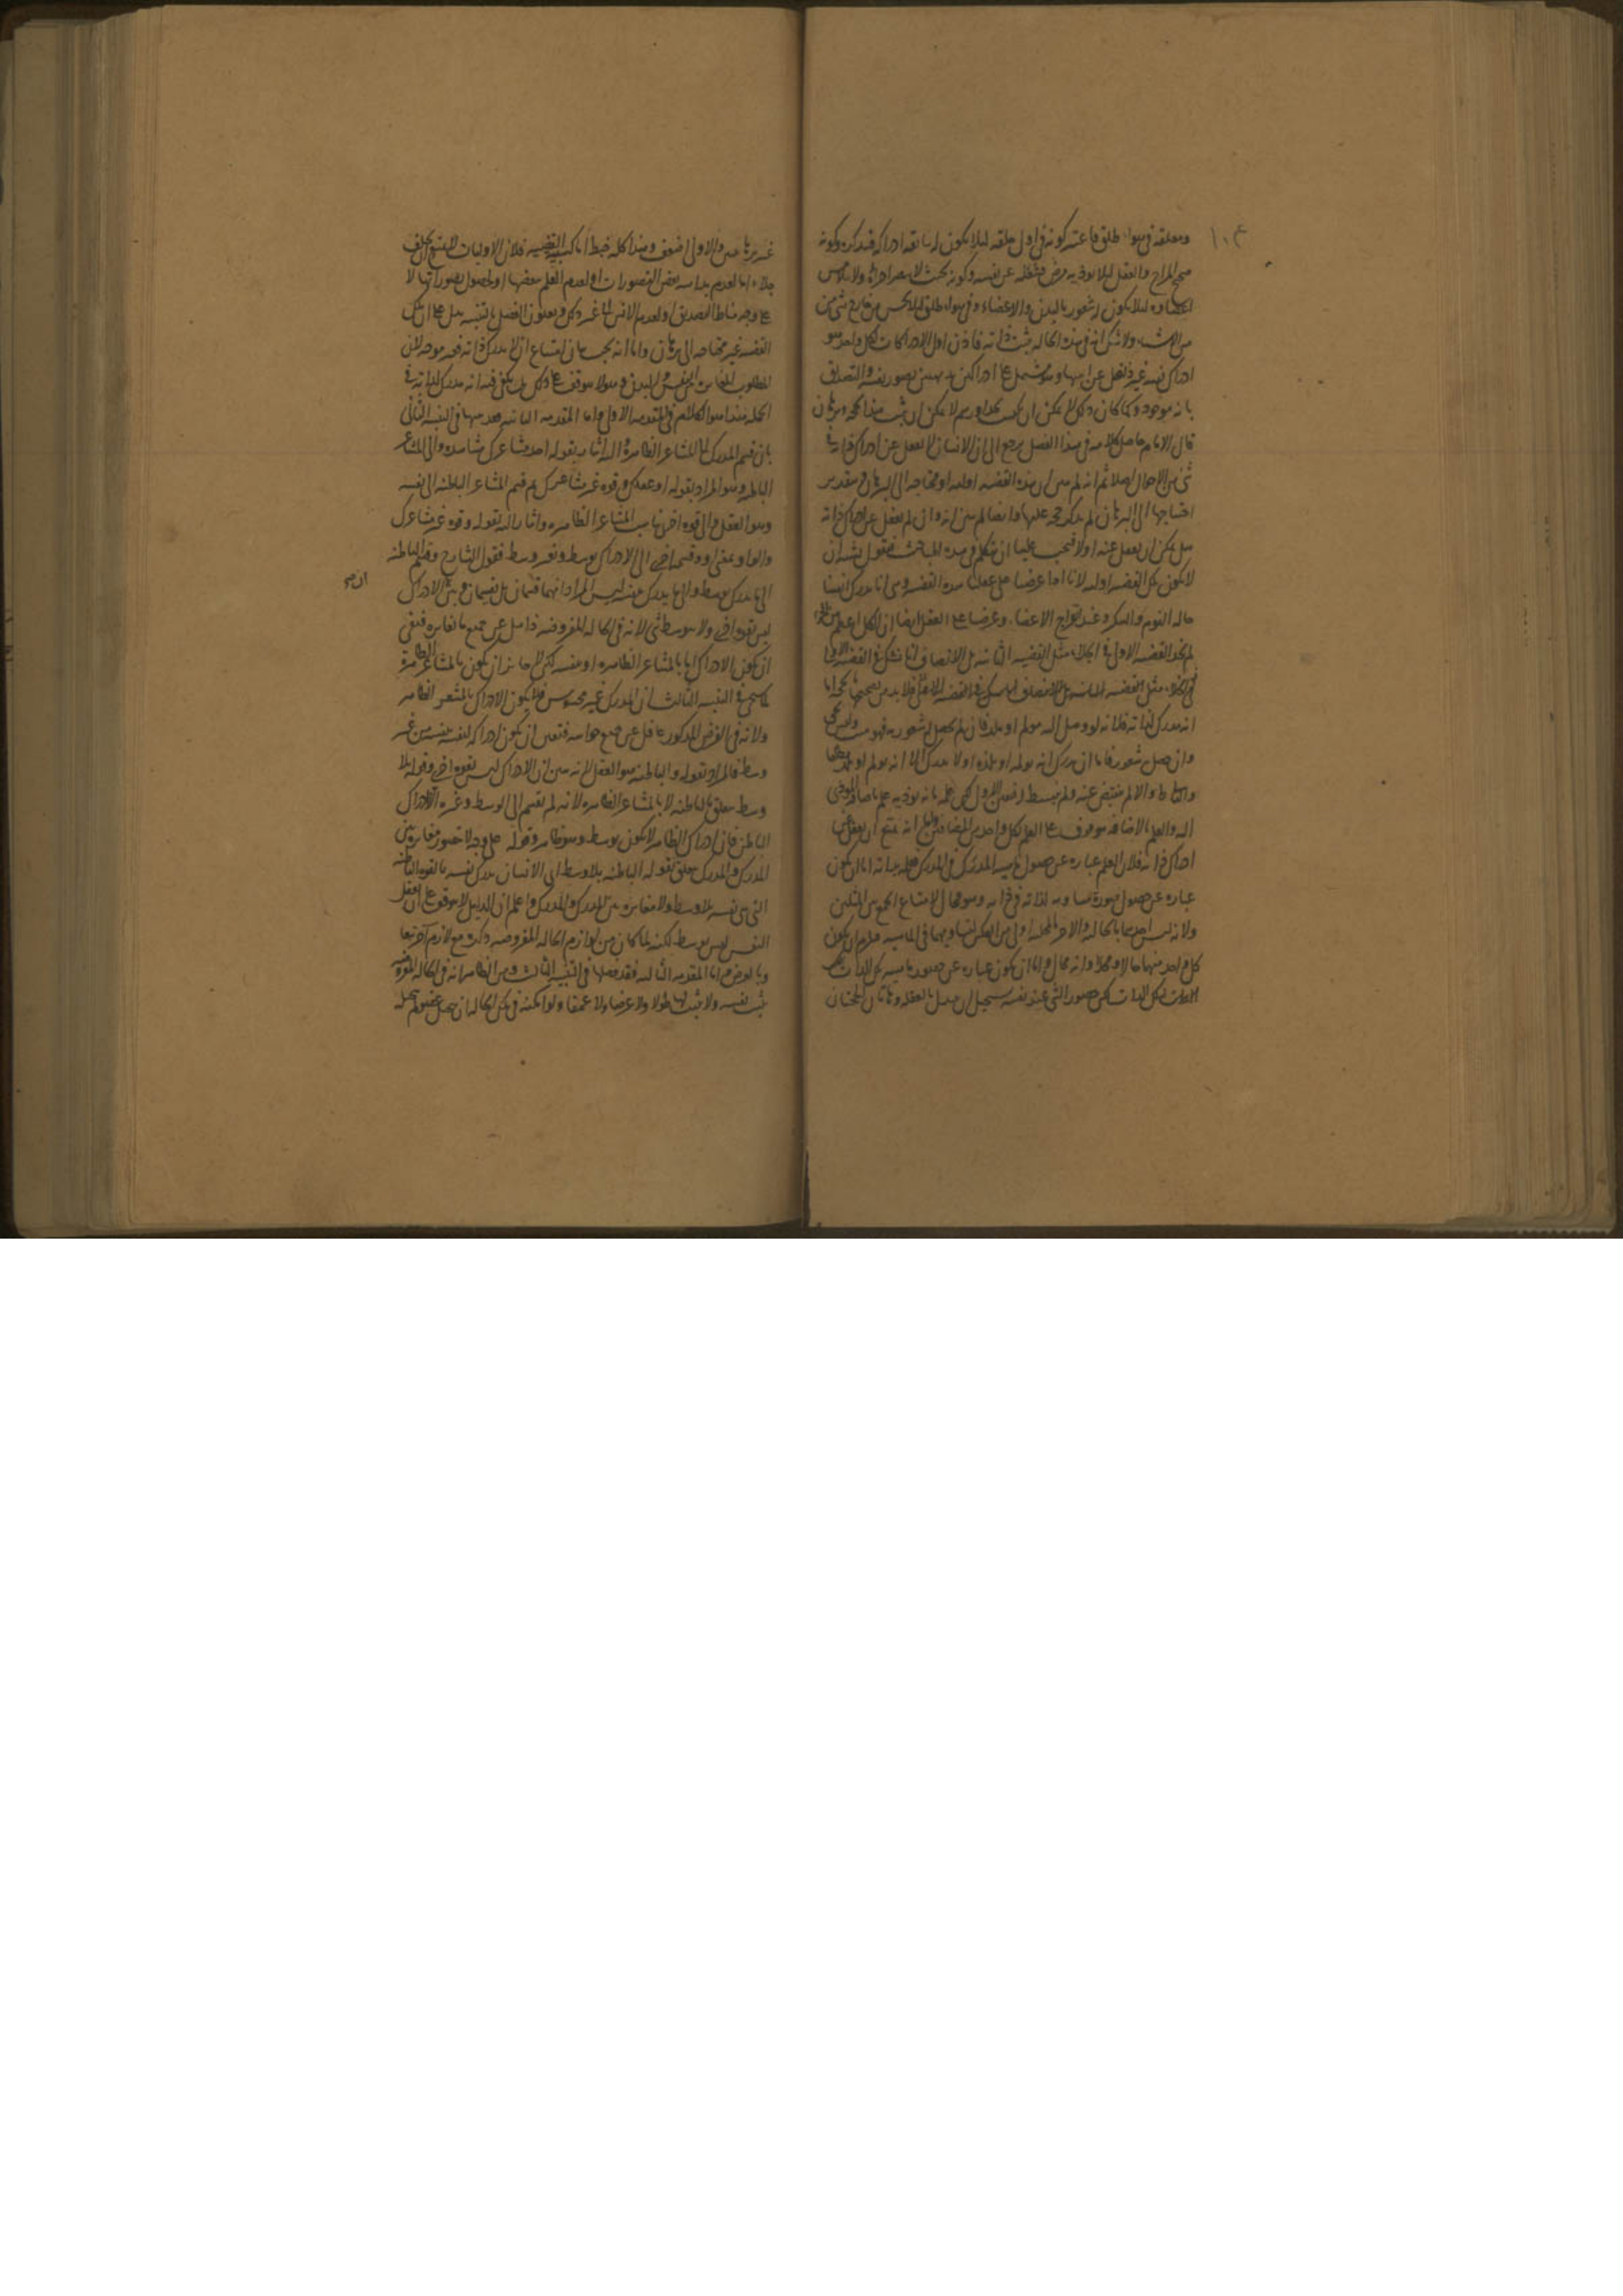 ١٠٤
ومعلقة فى هواء طلق فاعتبر كونه فى اول خلقه لئلا يكون له سابقة ادراك فيتذكره وكونه
صحيح المزاج والعقل لئلا يؤذيه مرض فيشغله عن نفسه وكونه بحيث لا يبصر اجزاءه ولا يتلامس
اعضاؤه لئلا يكون له شعور بالبدن والاعضاء وفى هواء طلق لئلا يحس من خارج شئ من
الاشياء ولا شك انه فى هذه الحالة يثبت ذاته فاذن اول الادراكات لكل واحد هو
ادراك نفسه غير ذاهل عن انيتها وهو مشتمل على ادراكين بديهيين تصور نفسه والتصديق
بانه موجود وكما كان ذلك لا يمكن ان يكتسب بحد او رسم لا يمكن ان يثبت هذا بحجة وبرهان
قال الامام حاصل كلامه فى هذا الفصل يرجع الى ان الانسان لا يغفل عن ادراك ذاته فى
شئ من الاحوال اصلا ثم انه لم يبين ان هذه القضية اولية او محتاجة الى البرهان وبتقدير
احتياجها الى البرهان لم يذكر حجة عليها وايضا لم يبين انه وان لم يغفل عن ادراك ذاته
هل يمكن ان يغفل عنه اولا فيجب علينا ان نتكلم فى هذه المباحث فنقول يشبه ان
لا يكون تلك القضية اولية لانا اذا عرضنا على عقلنا هذه القضية وهى انا ندرك انفسنا
حالة النوم والسكر وعند الاعضاء وعرضنا على العقل ايضا ان الكل اعظم من الجزء
لم نجد القضية الاولى فى الجلاء مثل القضية الثانية بل الانصاف انا نشك فى القضية الاولى
انه مدرك لذاته فلانه لو وصل اليه مولم او ملذ فان لم يحصل له شعور به فهو ميت وليس بحى
وان حصل له شعور فاما ان يدرك انه يولمه او يلذه او لا يدرك الا انه مولم او ملذ
اليه والعلم بالاضافة موقوف على العلم بكل واحد من المضافين واما انه يمتنع ان يغفل عن
ادراك ذاته فلان العلم عبارة عن حصول ماهية المدرك فى المدرك فعلمه بذاته اما ان يكون
عبارة عن حصول صورة مساوية لذاته فى ذاته وهو محال لامتناع الجمع بين المثلين
ولانه ليس احدهما بالحالية والاخر بالمحلية اولى من العكس لتساويهما فى الماهية فيلزم ان يكون
كل واحد منهما حالا ومحلا وانه محال واما ان يكون عبارة عن حضور ماهية تلك الذات
لتلك الذات لكن حضور الشئ عند نفسه يستحيل ان يتبدل بالغفلة وهاتان الحجتان
غير برهانيتين والاولى اضعف وهذا كله خبط فلان الاوليات
جلاء اما لعدم بداهة بعض التصورات او لعدم العلم ببعضها او لحصول تصوراتها لا
على وجه مناط التصديق او لعدم الانس الى غير ذلك وعنون الفصل بالتنبيه يدل على ان تلك
القضية غير محتاجة الى برهان واما انه يجب بيان امتناع ان لا يدرك ذاته فغير موجه لان
المطلوب المغايرة بين النفس والبدن وهو لا يتوقف على ذلك بل يكفى فيه انه مدرك لذاته فى
الجملة هذا هو الكلام فى المقدمة الاولى واما المقدمة الثانية فقد بينها فى التنبيه الثانى
بان قسم المدرك الى المشاعر الظاهرة واليه اشار بقوله احد مشاعرك مشاهدة والى المشاعر
الباطنة وهو المراد بقوله او عقلك وقوة غير مشاعرك ثم قسم المشاعر الباطنة الى نفسه
وهو العقل والى قوة اخرى تناسب المشاعر الظاهرة واشار اليه بقوله وقوة غير مشاعرك
والواو بمعنى او وقسمه اخرى الى الادراك بوسط وبغير وسط فقول الشارح وقسم الباطنة
الى ما يدرك بوسط والى ما يدرك بنفسه ليس المراد انهما قسمان بل تقسيمان وبين الادراك
ان صح
ليس بقوة اخرى ولا بوسط شئ لانه فى الحالة المفروضة ذاهل عن جميع ما يغايره فبقى
ان يكون الادراك اما بالمشاعر الظاهرة او بنفسه لكن لا جائز ان يكون بالمشاعر الظاهرة
كما سيجئ فى التنبيه الثالث ان المدرك غير محسوس فلا يكون الادراك بالمشعر الظاهر
ولانه فى الفرض المذكور غافل عن جميع حواسه فتعين ان يكون ادراكه لنفسه بنفسه من غير
وسط فالمراد بقوله والباطنة هو العقل لانه بين ان الادراك ليس بقوة اخرى وقوله بلا
وسط متعلق بالباطنة لا بالمشاعر الظاهرة لانه لم يقسم الى الوسط وغيره الا الادراك
الباطن فان ادراك الظاهر لا يكون بوسط وهو ظاهر وقوله على وجه لا يتصور مغايرة بين
المدرك والمدرك متعلق بقوله الباطنة بلا وسط اى الانسان يدرك نفسه بالقوة الباطنة
التى هى نفسه بلا وسط ولا مغايرة بين المدرك والمدرك واعلم ان الدليل لا يتوقف على ان تعقل
النفس ليس بوسط لكنه لما كان من لوازم الحالة المفروضة ذكره مع لازم آخر تبعا
وبالعرض واما المقدمة الثالثة فقد فصلها فى التنبيه الثالث وهى الظاهر انه فى الحالة المفروضة
يثبت نفسه ولا يثبت لها طولا ولا عرضا ولا عمقا ولو امكنه فى تلك الحالة ان يتخيل عضوا لم يتخيله